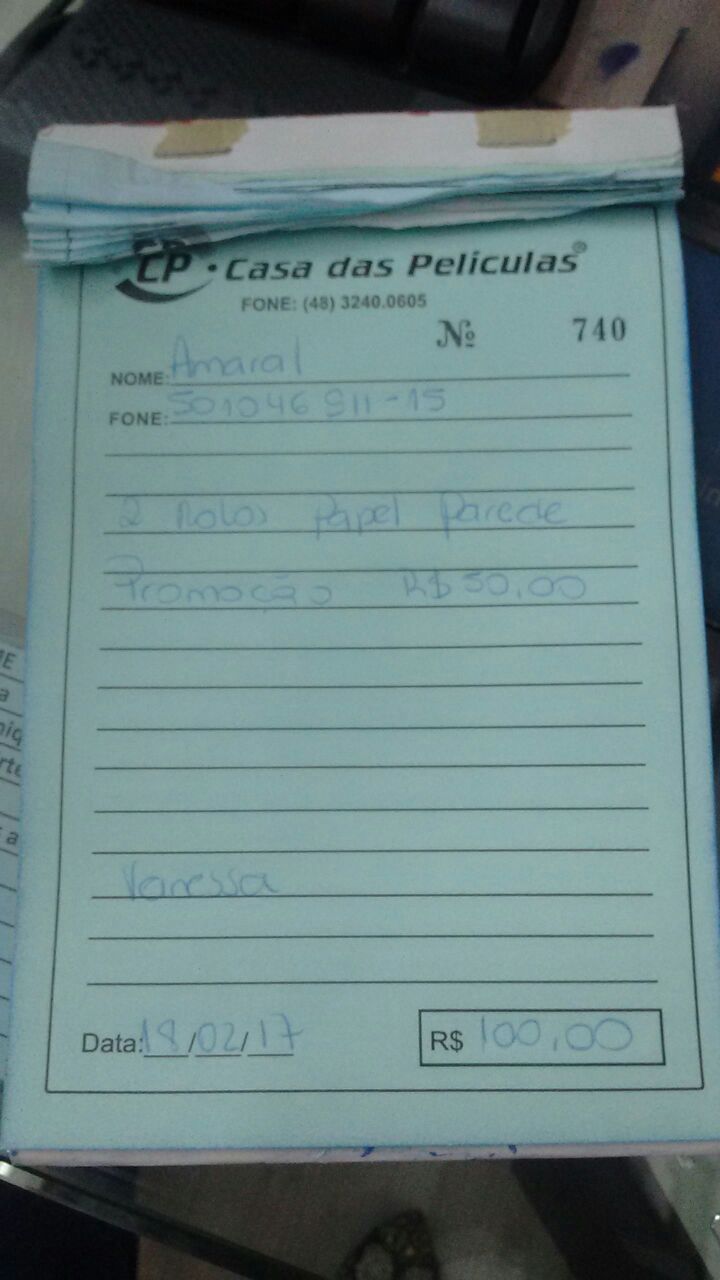 CP • Casa das Películas®
FONE: (48) 3240.0605
Nº 740
NOME: Amaral
FONE: 501046911-15
2 Rolos Papel Parede
Promoção R$ 50,00
Vanessa
Data: 18/02/17 R$ 100,00